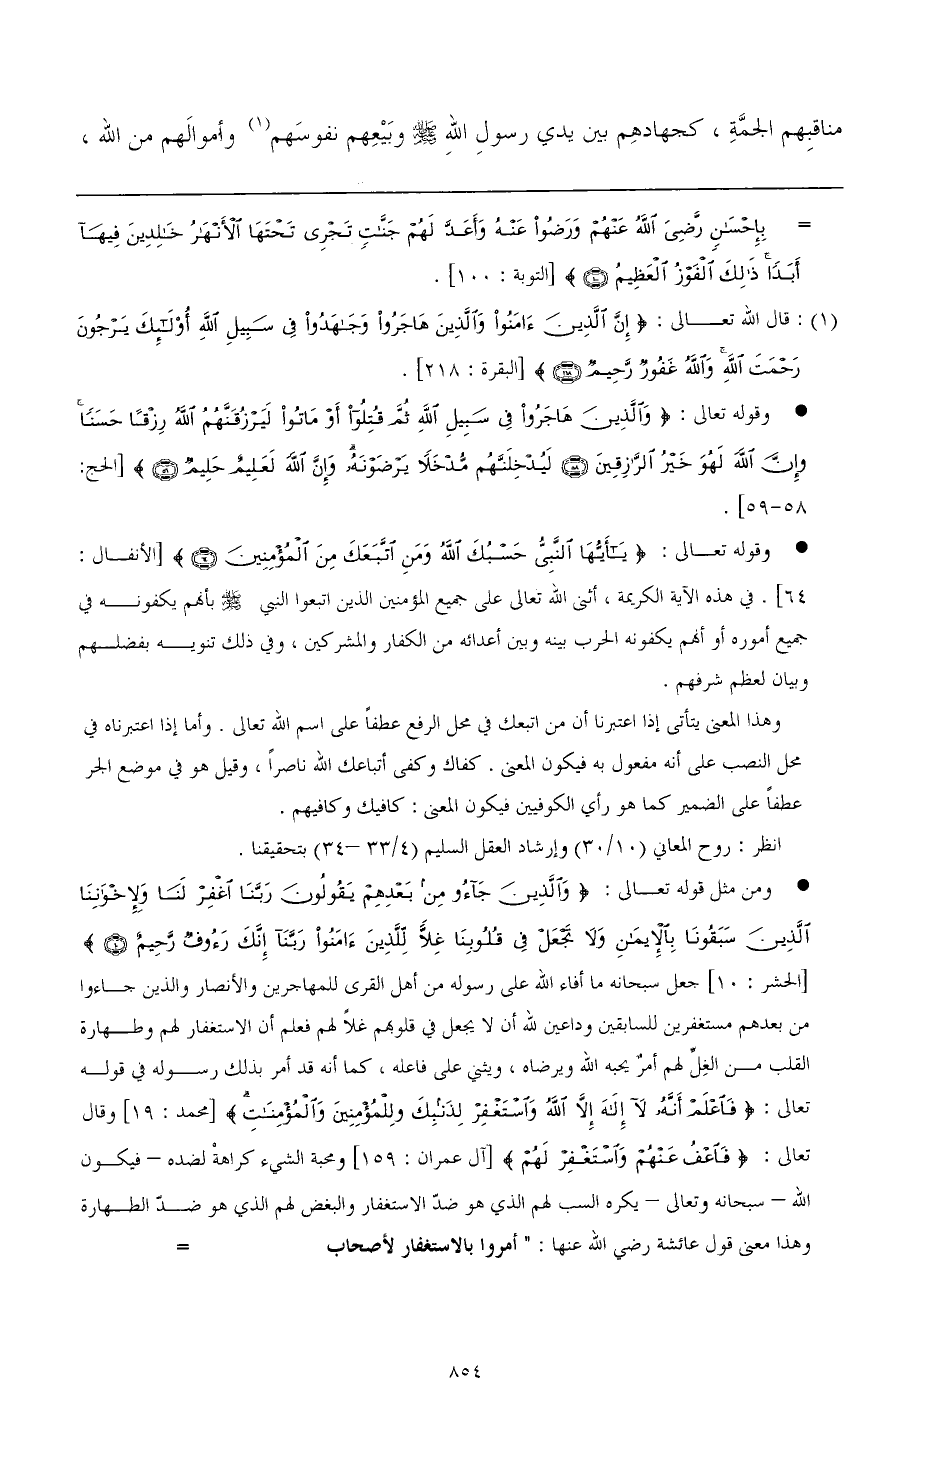 مناقبِهم الجمَّةِ ، كجهادهِم بين يدي رسولِ اللهِ ﷺ وبَيْعِهم نفوسَهم(١) وأموالَهم من الله ،
= بِإِحْسَٰنٍ رَّضِىَ ٱللَّهُ عَنْهُمْ وَرَضُوا۟ عَنْهُ وَأَعَدَّ لَهُمْ جَنَّٰتٍ تَجْرِى تَحْتَهَا ٱلْأَنْهَٰرُ خَٰلِدِينَ فِيهَآ
أَبَدًا ۚ ذَٰلِكَ ٱلْفَوْزُ ٱلْعَظِيمُ ﴿١٠٠﴾ ﴾ [التوبة : ١٠٠] .
(١) : قال الله تعـــالى : ﴿ إِنَّ ٱلَّذِينَ ءَامَنُوا۟ وَٱلَّذِينَ هَاجَرُوا۟ وَجَٰهَدُوا۟ فِى سَبِيلِ ٱللَّهِ أُو۟لَٰٓئِكَ يَرْجُونَ
رَحْمَتَ ٱللَّهِ ۚ وَٱللَّهُ غَفُورٌ رَّحِيمٌ ﴿٢١٨﴾ ﴾ [البقرة : ٢١٨] .
● وقوله تعالى : ﴿ وَٱلَّذِينَ هَاجَرُوا۟ فِى سَبِيلِ ٱللَّهِ ثُمَّ قُتِلُوٓا۟ أَوْ مَاتُوا۟ لَيَرْزُقَنَّهُمُ ٱللَّهُ رِزْقًا حَسَنًا ۚ
وَإِنَّ ٱللَّهَ لَهُوَ خَيْرُ ٱلرَّٰزِقِينَ ﴿٥٨﴾ لَيُدْخِلَنَّهُم مُّدْخَلًا يَرْضَوْنَهُۥ ۗ وَإِنَّ ٱللَّهَ لَعَلِيمٌ حَلِيمٌ ﴿٥٩﴾ ﴾ [الحج:
٥٨-٥٩] .
● وقوله تعـالى : ﴿ يَٰٓأَيُّهَا ٱلنَّبِىُّ حَسْبُكَ ٱللَّهُ وَمَنِ ٱتَّبَعَكَ مِنَ ٱلْمُؤْمِنِينَ ﴿٦٤﴾ ﴾ [الأنفـال :
٦٤] . في هذه الآية الكريمة ، أثنى الله تعالى على جميع المؤمنين الذين اتبعوا النبي ﷺ بأنهم يكفونـــه في
جميع أموره أو أنهم يكفونه الحرب بينه وبين أعدائه من الكفار والمشركين ، وفي ذلك تنويـــه بفضلـهم
وبيان لعظم شرفهم .
وهذا المعنى يتأتى إذا اعتبرنا أن من اتبعك في محل الرفع عطفاً على اسم الله تعالى . وأما إذا اعتبرناه في
محل النصب على أنه مفعول به فيكون المعنى . كفاك وكفى أتباعك الله ناصراً ، وقيل هو في موضع الجر
عطفاً على الضمير كما هو رأي الكوفيين فيكون المعنى : كافيك وكافيهم .
انظر : روح المعاني (٣٠/١٠) وإرشاد العقل السليم (٣٣/٤ –٣٤) بتحقيقنا .
● ومن مثل قوله تعـالى : ﴿ وَٱلَّذِينَ جَآءُو مِنۢ بَعْدِهِمْ يَقُولُونَ رَبَّنَا ٱغْفِرْ لَنَا وَلِإِخْوَٰنِنَا
ٱلَّذِينَ سَبَقُونَا بِٱلْإِيمَٰنِ وَلَا تَجْعَلْ فِى قُلُوبِنَا غِلًّا لِّلَّذِينَ ءَامَنُوا۟ رَبَّنَآ إِنَّكَ رَءُوفٌ رَّحِيمٌ ﴿١٠﴾ ﴾
[الحشر : ١٠] جعل سبحانه ما أفاء الله على رسوله من أهل القرى للمهاجرين والأنصار والذين جـاءوا
من بعدهم مستغفرين للسابقين وداعين لله أن لا يجعل في قلوبهم غلاً لهم فعلم أن الاستغفار لهم وطـهارة
القلب مــن الغِلِّ لهم أمرٌ يحبه الله ويرضاه ، ويثني على فاعله ، كما أنه قد أمر بذلك رســوله في قولـه
تعالى : ﴿ فَٱعْلَمْ أَنَّهُۥ لَآ إِلَٰهَ إِلَّا ٱللَّهُ وَٱسْتَغْفِرْ لِذَنۢبِكَ وَلِلْمُؤْمِنِينَ وَٱلْمُؤْمِنَٰتِ ۗ ﴾ [محمد : ١٩] وقال
تعالى : ﴿ فَٱعْفُ عَنْهُمْ وَٱسْتَغْفِرْ لَهُمْ ﴾ [آل عمران : ١٥٩] ومحبة الشيء كراهةٌ لضده – فيكـون
الله – سبحانه وتعالى – يكره السب لهم الذي هو ضدّ الاستغفار والبغض لهم الذي هو ضـــدّ الطـهارة
وهذا معنى قول عائشة رضي الله عنها : " أمروا بالاستغفار لأصحاب =
٨٥٤